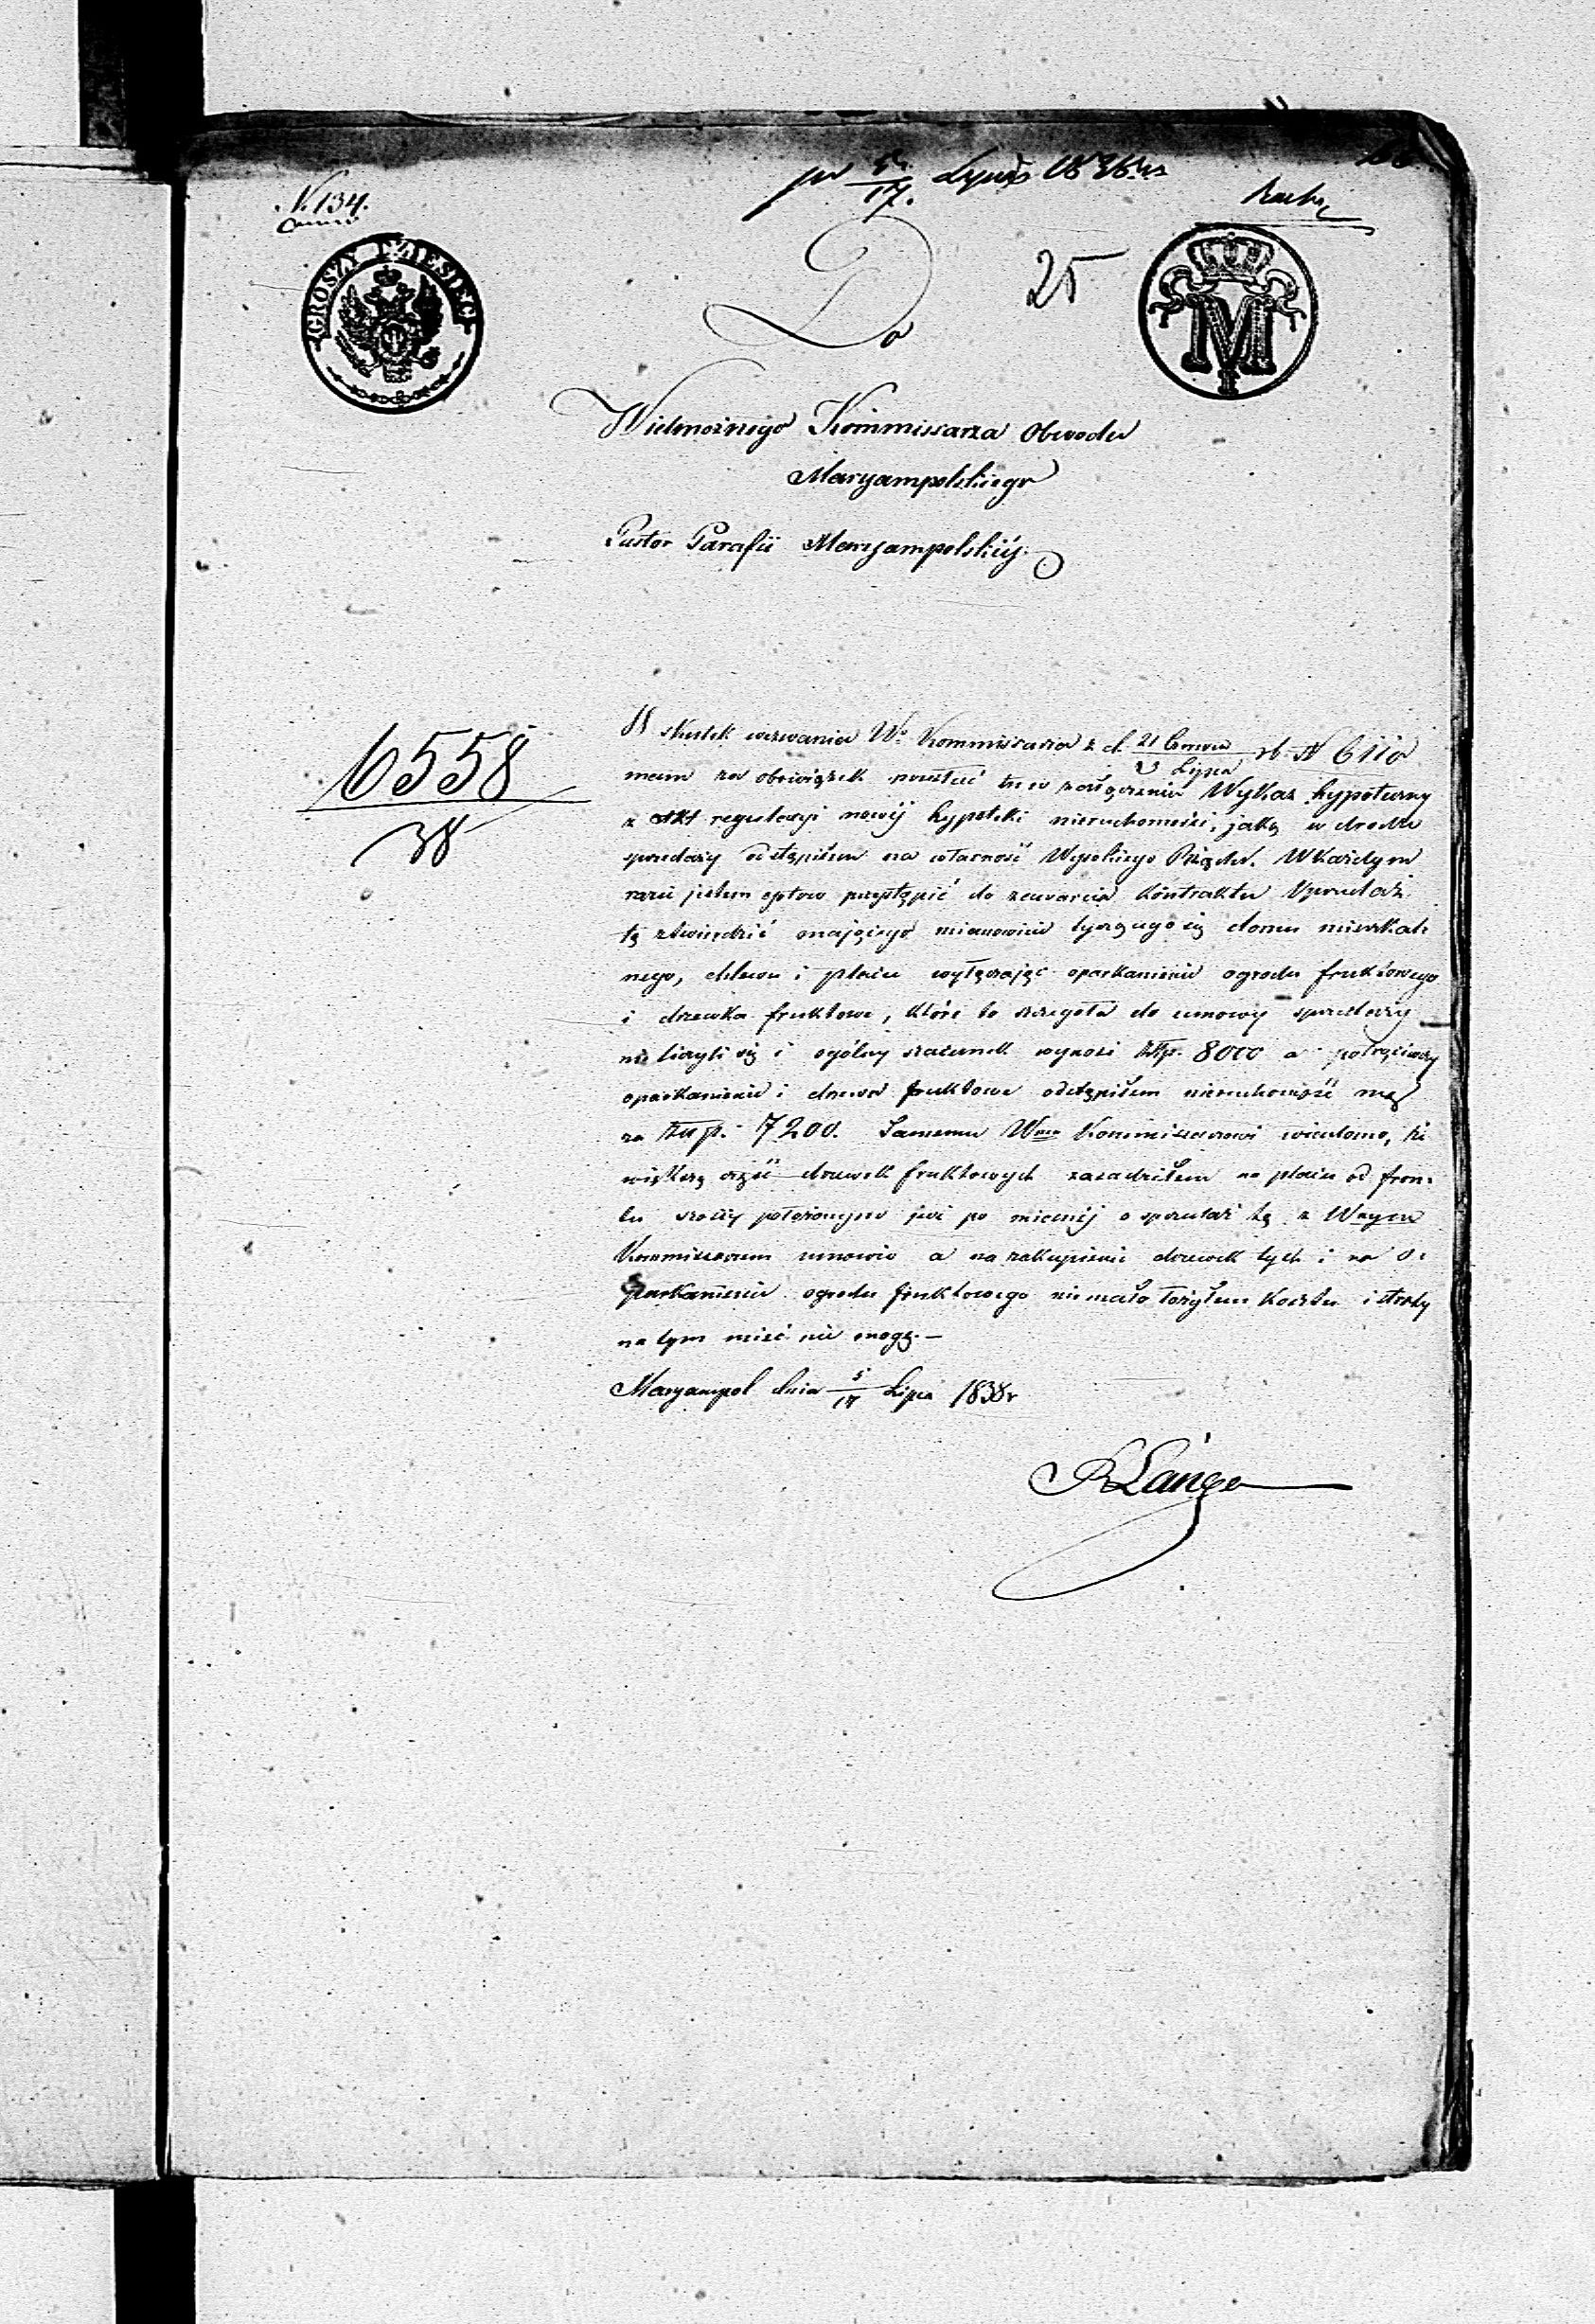 N. 134.
GROSZY DZIESIĘĆ
25
Do
Wielmożnego Kommissarza Obwodu
Maryampolskiego
Pastor Parafii Maryampolskiéy.
6558
38
W skutek wezwania Wo Kommissarza z d. 21 Czerwca / 3 Lipca rb. N 6110
mam za obowiązek przesłać tu w załączeniu Wykaz hypoteczny
z akt regulacyi nowéj hypoteki nieruchomości, jaką w drodze
sprzedaży odstąpiłem na własność Wysokiego Rządu. W każdym
razie jestem gotow przystąpić do zawarcia Kontraktu sprzedaż
tę stwierdzić mającego mianowicie tyczącego się domu mieszkal-
nego, chlewu i placu wyłączając oparkanienie ogrodu fruktowego
i drzewka fruktowe, które to szczegóła do umowy sprzedaży
nie liczyli się i ogólny szacunek wynosi Złp. 8000 a potrąciwszy
oparkanienie i drzewa fruktowe odstąpiłem nieruchomość mą
za Złp. 7200. Samemu Wmu Kommissarzowi wiadomo, że
większą część drzewek fruktowych zasadziłem na placu od fron-
tu położonym już po mienéj o sprzedaż tę z Wnym
Kommissarzem umowie a na zakupienie drzewek tych i na o-
parkanienie ogrodu fruktowego nie mało łożyłem kosztu i straty
na tym mieć nie mogę.—
Maryampol dnia 5/17 Lipca 1838 r
R Lange